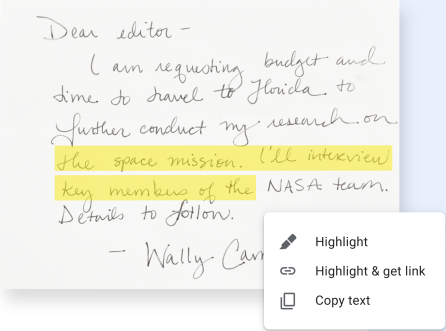 Dear editor –
I am requesting budget and
time to travel to Florida to
further conduct my research on
the space mission. I'll interview
key members of the NASA team.
Details to follow.
– Wally
Highlight
Highlight & get link
Copy text